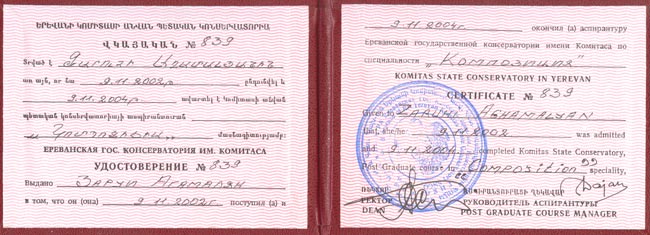 ԵՐԵՎԱՆԻ ԿՈՄԻՏԱՍԻ ԱՆՎԱՆ ՊԵՏԱԿԱՆ ԿՈՆՍԵՐՎԱՏՈՐԻԱ
ՎԿԱՅԱԿԱՆ № 839
Տրված է Զարուհի Աղամալյանին
առ այն, որ նա 9.11.2002թ. ընդունվել և
9.11.2004թ. ավարտել է Կոմիտասի անվան
պետական կոնսերվատորիայի ասպիրանտուրան
մասնագիտությամբ:
ЕРЕВАНСКАЯ ГОС. КОНСЕРВАТОРИЯ ИМ. КОМИТАСА
УДОСТОВЕРЕНИЕ № 839
Выдано Заруи Агамалян
в том, что он (она) 9.11.2002г. поступил (а) и
9.11.2004г. окончил (а) аспирантуру
Ереванской государственной консерватории имени Комитаса по
специальности „Композиция“
KOMITAS STATE CONSERVATORY IN YEREVAN
CERTIFICATE № 839
Given to Zaruhi Aghamalyan
that, she/he 9.11.2002 was admitted
and 9.11.2004 completed Komitas State Conservatory,
Post Graduate course in Composition” speciality,
ՌԵԿՏՈՐ
РЕКТОР
DEAN
ԱՍՊԻՐԱՆՏՈՒՐԱՅԻ ՂԵԿԱՎԱՐ
РУКОВОДИТЕЛЬ АСПИРАНТУРЫ
POST GRADUATE COURSE MANAGER